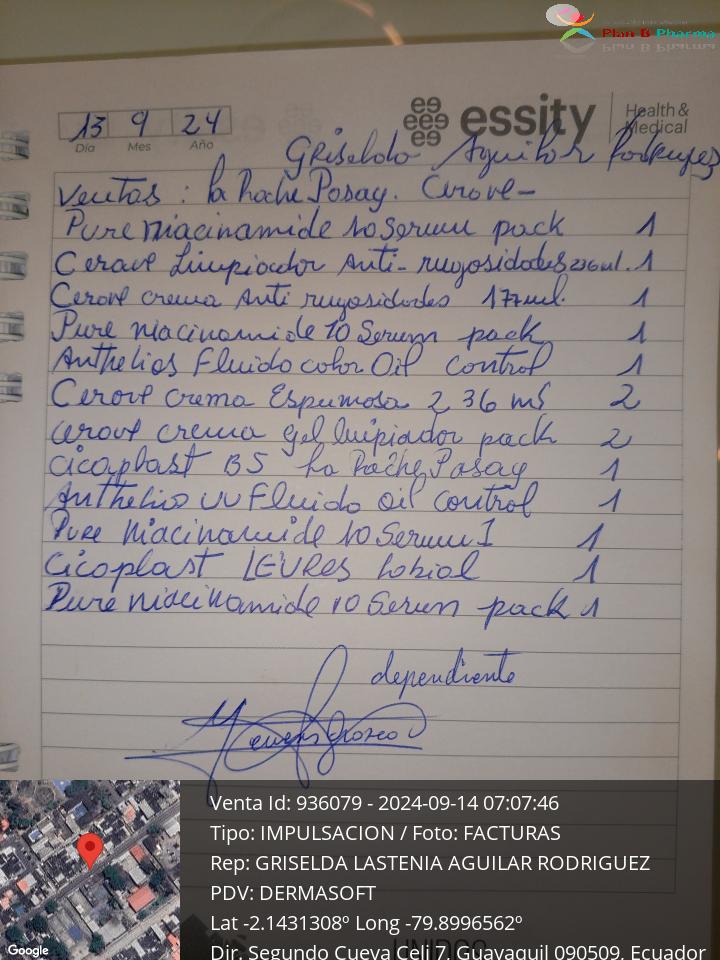 Plan B Pharma
13 9 24
Día Mes Año
essity Health & Medical
Griselda Aguilar Rodriguez
Ventas : La Roche Posay. Cerave-
Pure Niacinamide 10 Serum pack 1
Cerave Limpiador Anti-rugosidades 236ml. 1
Cerave crema Anti rugosidades 177ml. 1
Pure niacinamide 10 Serum pack 1
Anthelios Fluido color Oil control 1
Cerave crema Espumosa 236 ml 2
Cerave crema gel limpiador pack 2
Cicaplast B5 La Roche Posay 1
Anthelios UV Fluido oil control 1
Pure Niacinamide 10 Serum I 1
Cicaplast LEVRES Labial 1
Pure niacinamide 10 Serum pack 1
dependiente
Venta Id: 936079 - 2024-09-14 07:07:46
Tipo: IMPULSACION / Foto: FACTURAS
Rep: GRISELDA LASTENIA AGUILAR RODRIGUEZ
PDV: DERMASOFT
Lat -2.1431308º Long -79.8996562º
Dir. Segundo Cueva Celi 7, Guayaquil 090509, Ecuador
Google